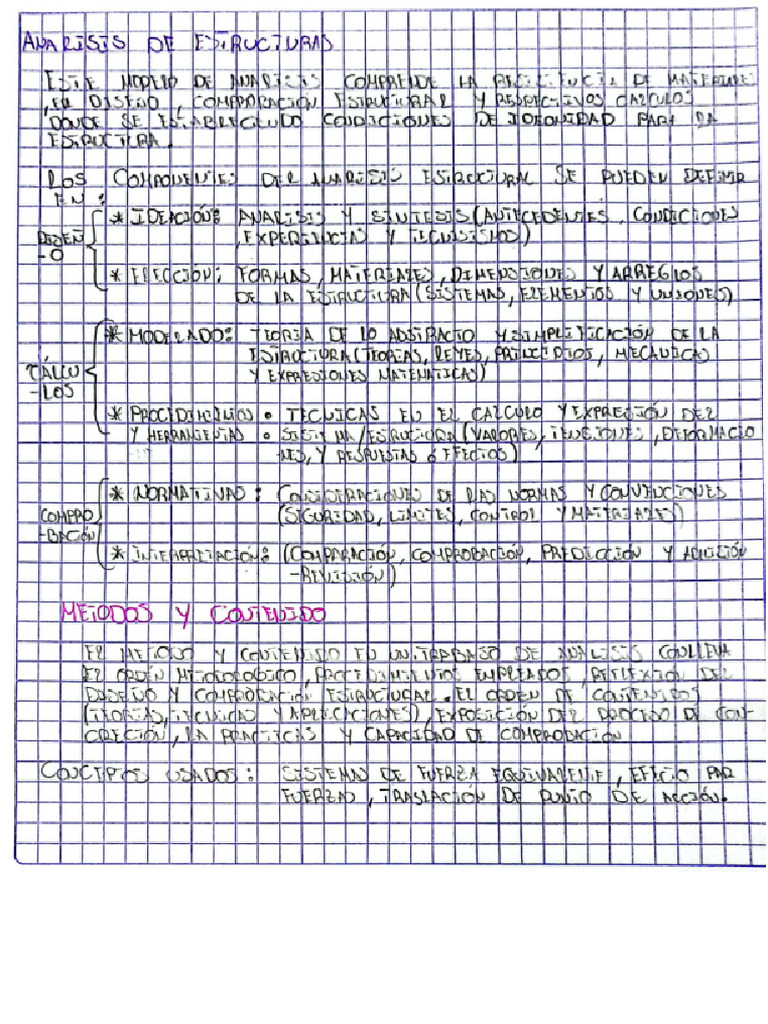 ANALISIS DE ESTRUCTURAS
ESTE MODELO DE ANALISIS COMPRENDE LA RESISTENCIA DE MATERIALES
, EL DISEÑO , COMPROBACIÓN ESTRUCTURAL Y RESPECTIVOS CALCULOS
DONDE SE ESTABLECENDO CONDICIONES DE IDONIDAD PARA LA
ESTRUCTURA.
LOS COMPONENTES DEL ANALISIS ESTRUCTURAL SE PUEDEN DEFINIR
EN :
DISEÑ
-O
* IDEACIÓN: ANALISIS Y SINTESIS (ANTECEDENTES, CONDICIONES
, EXPERIENCIAS Y TECNISISMOS)
* ELECCIÓN: FORMAS, MATERIALES, DIMENSIONES Y ARREGLOS
DE LA ESTRUCTURA (SISTEMAS, ELEMENTOS Y UNIONES)
CÁLCU
-LOS
* MODELADO: TEORIA DE LO ABSTRACTO Y SIMPLIFICACIÓN DE LA
ESTRUCTURA (TEORIAS, LEYES, PRINCIPIOS, MECANICAS
Y EXPRESIONES MATEMATICAS)
* PROCIDIMIENTOS • TECNICAS EN EL CALCULO Y EXPRESIÓN DEL
Y HERRAMIENTAS • SISTEMA/ESTRUCTURA (VALORES, TENCIONES, DEFORMACIO
-NES, Y RESPUESTAS o EFECTOS)
COMPRO
-BACIÓN
* NORMATIVAS : CONSIDERACIONES DE LAS NORMAS Y CONVENCIONES
(SIGURIDAD, LIMITES, CONTROL Y MATERIALES)
* INTERPRETACIÓN: (COMPARACIÓN, COMPROBACIÓN, PREDICCIÓN Y
-REVISIÓN)
METODOS Y CONTENIDO
EL METODO Y CONTENIDO EN UN TRABAJO DE ANALISIS CONLLEVA
EL ORDEN METODOLOGICO, PROCEDIMIENTOS EMPLEADOS, REFLEXION DEL
DISEÑO Y COMPROBACION ESTRUCTURAL. EL ORDEN DE CONTENIDOS
(TEORIAS, TECNICAS Y APLICACIONES), EXPOSICIÓN DEL PROCESO DE CON-
CRECIÓN, LA PRACTICAS Y CAPACIDAD DE COMPROBACIÓN
CONCEPTOS USADOS : SISTEMAS DE FUERZA EQUIVALENTE, EFECTO PAR
FUERZAS, TRASLACIÓN DE PUNTO DE ACCIÓN.